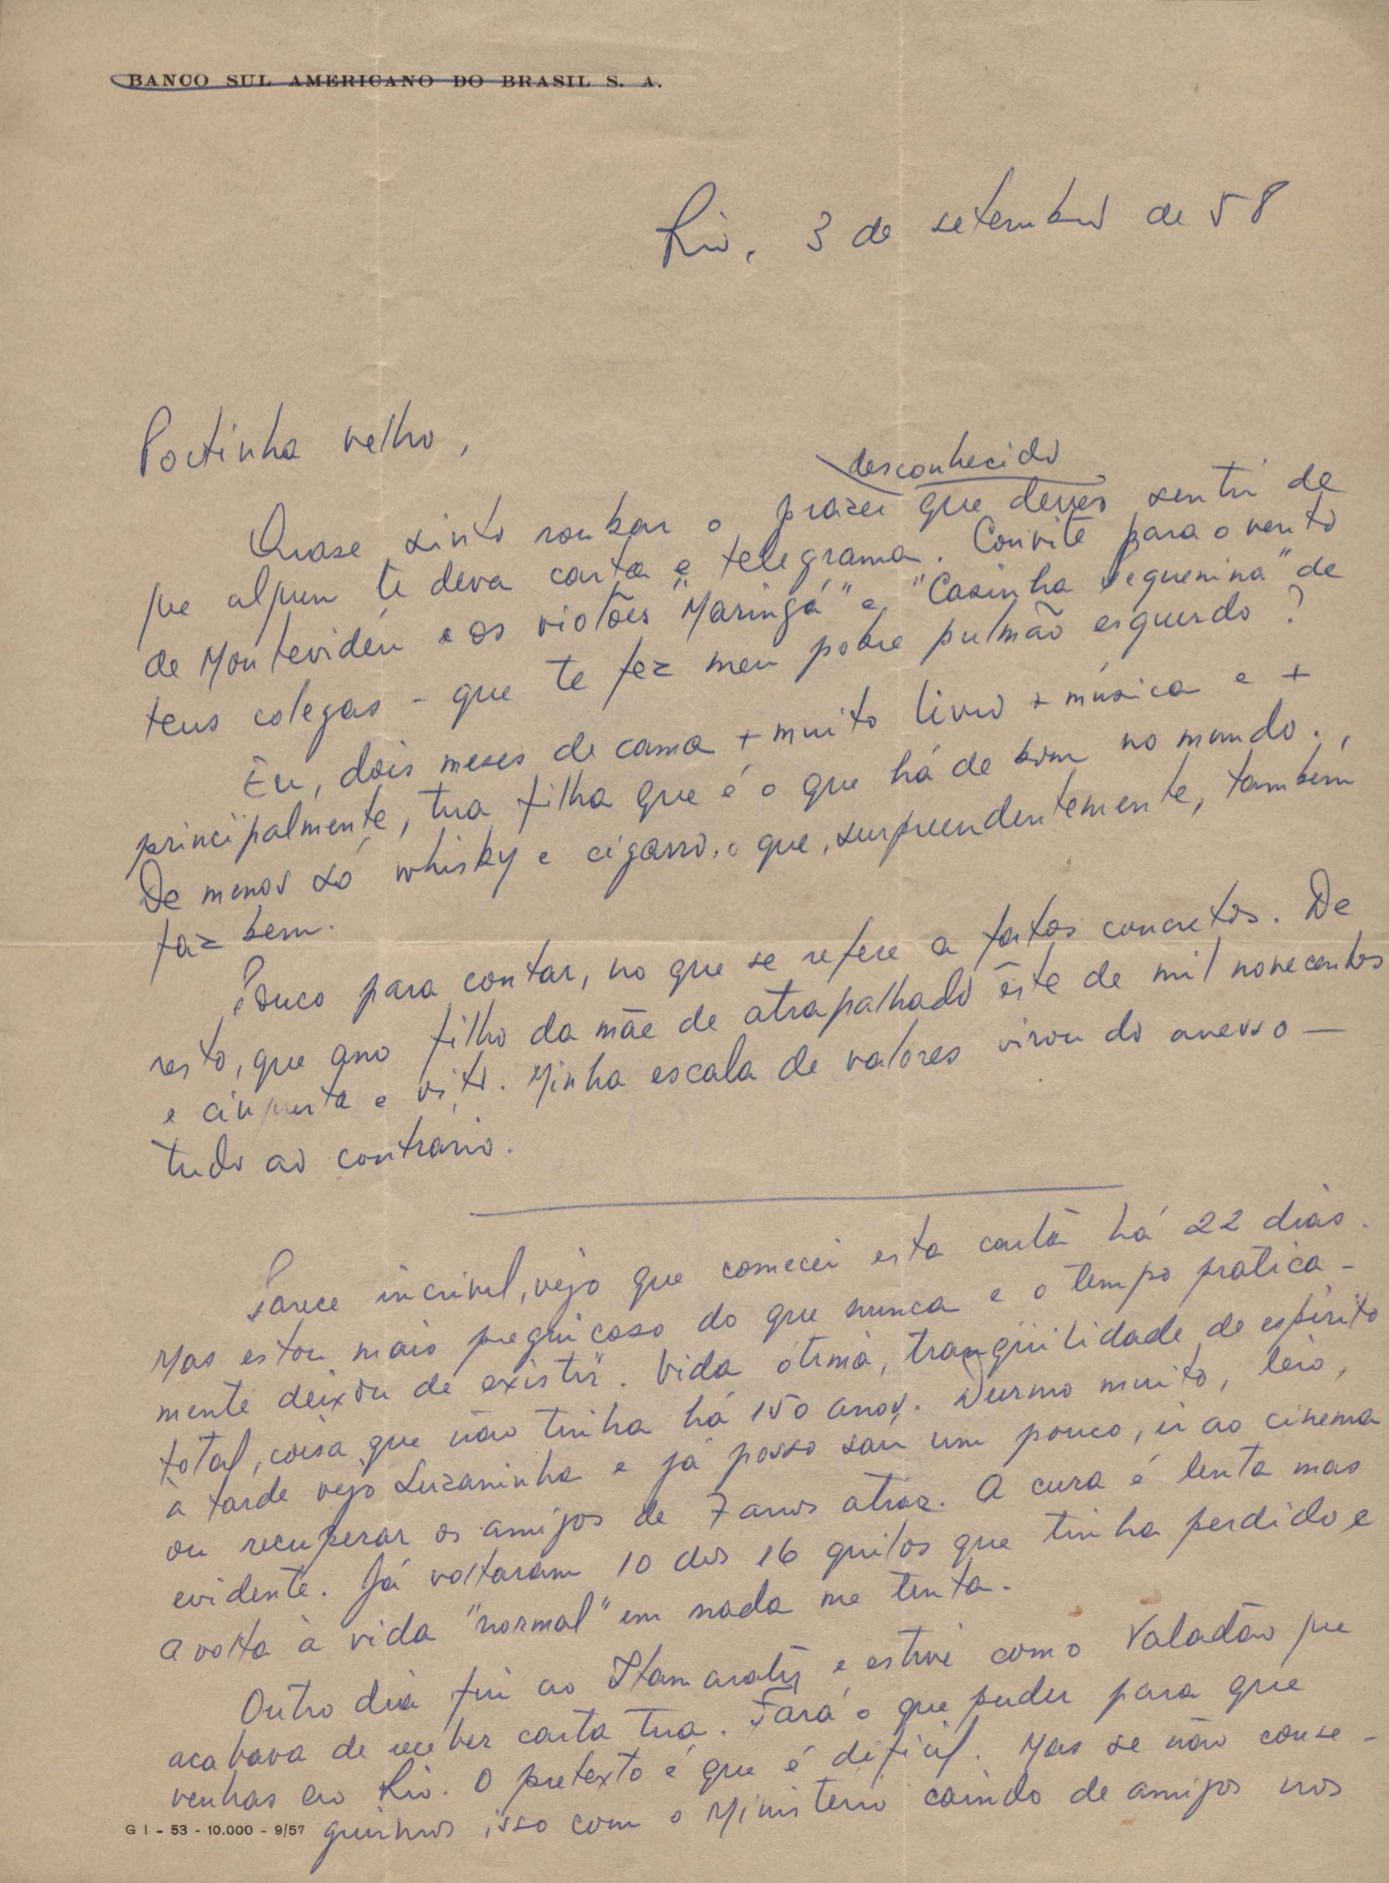 BANCO SUL AMERICANO DO BRASIL S. A.
Rio, 3 de setembro de 58
Poetinha velho,
desconhecido
Quase sinto roubar o prazer que deves sentir de
que alguem te deva carta e telegrama. Convite para o vento
de Montevidéu e os violões "Maringá" e "Casinha Pequenina" de
teus colegas - que te fez meu pobre pulmão esquerdo?
Eu, dois meses de cama + muito livro + música e +
principalmente, tua filha que é o que há de bom no mundo.
De menos só whisky e cigarro, o que, surpreendentemente, também
faz bem.
Pouco para contar, no que se refere a fatos concretos. De
resto, que ano filho da mãe de atrapalhado êste de mil novecentos
e cinquenta e oito. Minha escala de valores virou do avesso —
tudo ao contrário.
Parece incrivel, vejo que comecei esta carta há 22 dias.
Mas estou mais preguiçoso do que nunca e o tempo pratica-
mente deixou de existir. Vida ótima, tranqüilidade de espírito
total, coisa que não tinha há 150 anos. Durmo muito, leio,
à tarde vejo Suzaninha e já posso sair um pouco, ir ao cinema
ou recuperar os amigos de 7 anos atraz. A cura é lenta mas
evidente. Já voltaram 10 dos 16 quilos que tinha perdido e
a volta à vida "normal" em nada me tenta.
Outro dia fui ao Itamaraty e estive com o Valadão que
acabava de receber carta tua. Fará o que puder para que
venhas ao Rio. O pretexto é que é dificil. Mas se não conse-
guirmos isso com o Ministério caindo de amigos nos
G I - 53 - 10.000 - 9/57